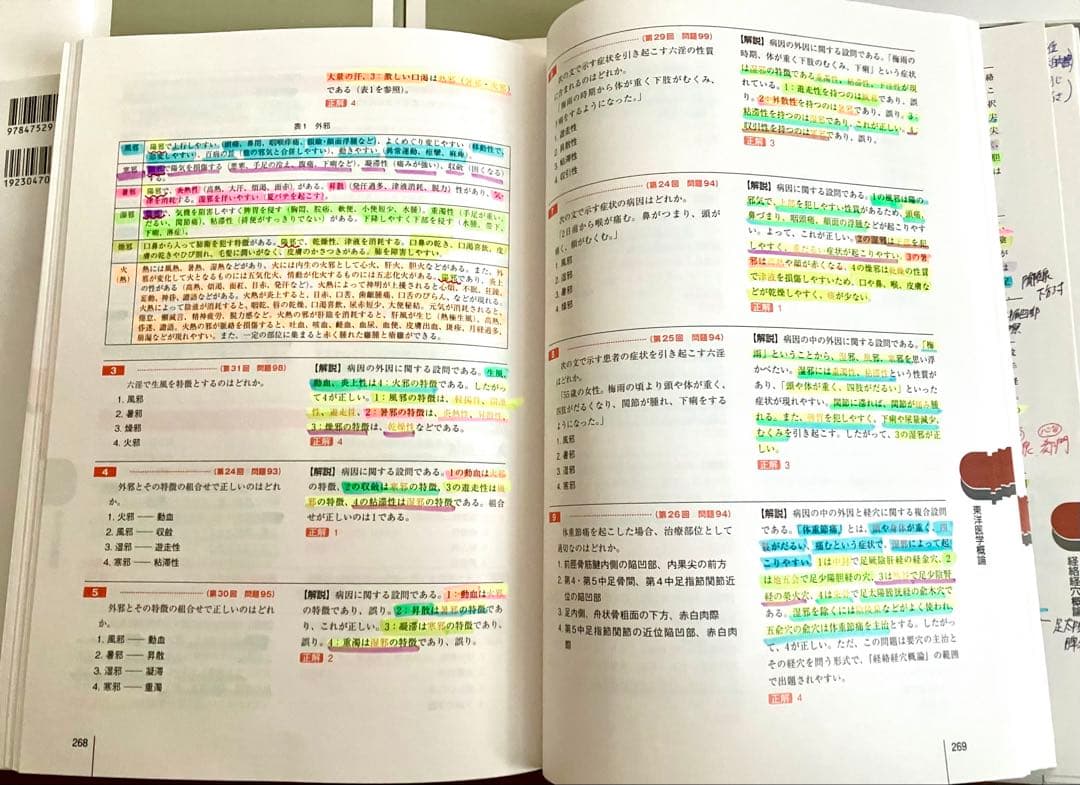 97847529
19230470
大量の汗、3：激しい口渇は熱邪（暑邪・火邪）
である（表1を参照）。
正解 4
表1 外邪
風邪
陽邪で上行しやすい。（頭痛、鼻閉、咽喉疼痛、眼瞼・顔面浮腫など）、よくめぐり変じやすい（移動性で、
急変しやすい）、百病の長（他の邪気と合併しやすい）、動きやすい（異常運動、痙攣、麻痺）。
寒邪
で陽気を損傷する（悪寒、手足の冷え、腹痛、下痢など）、凝滞性（痛みが強い）、収斂（固くなる）
する。
暑邪
陽邪で、炎熱性（高熱、大汗、煩渇、面赤）がある。昇散（発汗過多、津液消耗、脱力）性があり、気・
津を消耗する。湿邪を伴いやすい［夏バテを起こす］。
湿邪
で、気機を阻害しやすく脾胃を侵す（胸悶、脘痞、軟便、小便短少、水腫）。重濁性（手足が重い、
だるい、関節痛）、粘滞性（排便がすっきりでない）がある。下降しやすく下部を侵す（水腫、帯下、
下痢、淋症）。
燥邪
口鼻から入って肺衛を犯す特徴がある。陽邪で、乾燥性、津液を消耗する。口鼻の乾き、口渇喜飲、皮
膚の乾きやひび割れ、毛髪に潤いがなく、皮膚のかさつきがある。肺を障害しやすい。
火
（熱）
熱には風熱、暑熱、湿熱などがあり、火には内生の火邪として心火、肝火、胆火などがある。また、外
邪が変化して火となるものには五気化火、情動が化火するものには五志化火がある。陽邪であり、炎上
性の性があり（高熱、煩渇、面紅、目赤、発汗など）。火熱によって神明が上擾されると心煩、不眠、狂躁、
妄動、神昏、譫語などがある。火熱が炎上すると、目赤、口苦、歯齦腫痛、口舌のびらん、などが現れる。
火熱によって陰液が消耗すると、咽乾、唇の乾燥、口渇喜飲、尿赤短少、大便秘結、元気が消耗されると、
倦怠、懶減言、精神疲労、脱力感など、火熱の邪が肝陰を消耗すると、肝風が生じ（熱極生風）、高熱、
昏迷、譫語、火熱の邪が脈絡を損傷すると、吐血、咳血、衄血、血尿、血便、皮膚出血、斑疹、月経過多、
崩漏などが現れやすい。また、一定の部位に集まると赤く腫れた癰腫と瘡瘍ができる。
3
（第31回 問題98）
六淫で生風を特徴とするのはどれか。
1. 風邪
2. 暑邪
3. 燥邪
4. 火邪
【解説】病因の外因に関する設問である。生風、
動血、炎上性は4：火邪の特徴である。したがっ
て4が正しい。1：風邪の特徴は、軽揚性、開泄
性、遊走性、2：暑邪の特徴は、炎熱性、昇散性、
3：燥邪の特徴は、乾燥性などである。
正解 4
4
（第24回 問題93）
外邪とその特徴の組合せで正しいのはどれ
か。
1. 火邪 ── 動血
2. 風邪 ── 収斂
3. 湿邪 ── 遊走性
4. 寒邪 ── 粘滞性
【解説】病因に関する設問である。1の動血は火邪
の特徴、2の収斂は寒邪の特徴、3の遊走性は風
邪の特徴、4の粘滞性は湿邪の特徴である。組合
せが正しいのは1である。
正解 1
5
（第30回 問題95）
外邪とその特徴の組合せで正しいのはどれ
か。
1. 風邪 ── 動血
2. 暑邪 ── 昇散
3. 湿邪 ── 凝滞
4. 寒邪 ── 重濁
【解説】病因に関する設問である。1：動血は火邪
の特徴であり、誤り。2：昇散は暑邪の特徴であ
り、これが正しい。3：凝滞は寒邪の特徴であり、
誤り。4：重濁は湿邪の特徴であり、誤り。
正解 2
268
（第29回 問題99）
次の文で示す症状を引き起こす六淫の性質
に含まれるのはどれか。
「梅雨の時期から体が重く下肢がむくみ、
下痢をするようになった。」
1. 遊走性
2. 昇散性
3. 粘滞性
4. 収引性
【解説】病因の外因に関する設問である。「梅雨の
時期、体が重く下肢のむくみ、下痢」という症状
は湿邪の特徴である重濁性、粘滞性、下注性が現
れている。1：遊走性を持つのは風邪であり、誤
り。2：外散性を持つのは暑邪であり、誤り。3：
粘滞性を持つのは湿邪であり、これが正しい。4：
収引性を持つのは寒邪であり、誤り。
正解 3
7
（第24回 問題94）
次の文で示す症状の病因はどれか。
「2日前から喉が痛む。鼻がつまり、頭が
痛く、顔がむくむ。」
1. 風邪
2. 湿邪
3. 暑邪
4. 燥邪
【解説】病因に関する設問である。1の風邪は陽の
邪気で、上部を犯しやすい性質があるため、頭痛、
鼻づまり、咽頭痛、顔面の浮腫などが起こりやす
い。よって、これが正しい。2の湿邪は下部を犯
しやすく、重だるい症状が起こりやすい。3の暑
邪は高熱や顔が赤くなる。4の燥邪は乾燥の性質
で津液を損傷しやすいため、口や鼻、喉、皮膚な
どが乾燥しやすく、痰が少ない。
正解 1
8
（第25回 問題94）
次の文で示す患者の症状を引き起こす六淫
はどれか。
「55歳の女性。梅雨の頃より頭や体が重く、
四肢がだるくなり、関節が腫れ、下痢をする
ようになった。」
1. 風邪
2. 暑邪
3. 湿邪
4. 寒邪
【解説】病因の中の外因に関する設問である。「梅
雨」ということから、湿邪、風邪、寒邪を思い浮
かべたい。湿邪には重濁性、粘滞性という性質が
あり、「頭や体が重く、四肢がだるい」といった
症状が現れやすい。関節に滞れば、関節が痛み腫
れる。また、脾胃を犯しやすく、下痢や尿量減少、
むくみを引き起こす。したがって、3の湿邪が正
しい。
正解 3
9
（第26回 問題94）
体重節痛を起こした場合、治療部位として
適切なのはどれか。
1. 前脛骨筋腱内側の陥凹部、内果尖の前方
2. 第4・第5中足骨間、第4中足指節関節近
位の陥凹部
3. 足内側、舟状骨粗面の下方、赤白肉際
4. 第5中足指節関節の近位陥凹部、赤白肉
際
【解説】病因の中の外因と経穴に関する複合設問
である。「体重節痛」とは、頭や身体が重く、四
肢がだるい、痛むという症状で、湿邪によって起こ
りやすい。1は中封で足厥陰肝経の経金穴、2
は地五会で足少陽胆経の穴、3は然谷で足少陰腎
経の滎火穴、4は束骨で足太陽膀胱経の兪木穴で
ある。湿邪を除くには陰陵泉などがよく使われ、
五兪穴の兪穴は体重節痛を主治とする。したがっ
て、4が正しい。ただ、この問題は要穴の主治と
その経穴を問う形式で、「経絡経穴概論」の範囲
で出題されやすい。
正解 4
269
東洋医学概論
経絡経穴概論